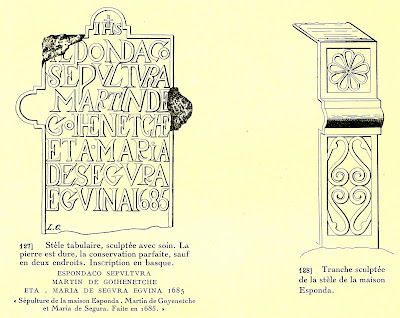 IHS
DONDACO
SEPVLTVRA
MARTIN DE
GOIHENETCHE
ETA·MARIA
DE SEGVRA
EGVINA 1685
L.C.
127] Stèle tabulaire, sculptée avec soin. La
pierre est dure, la conservation parfaite, sauf
en deux endroits. Inscription en basque.
ESPONDACO SEPVLTVRA
MARTIN DE GOIHENETCHE
ETA . MARIA DE SEGVRA EGVINA 1685
« Sépulture de la maison Esponda. Martin de Goyenetche
et Maria de Segura. Faite en 1685. »
128] Tranche sculptée
de la stèle de la maison
Esponda.